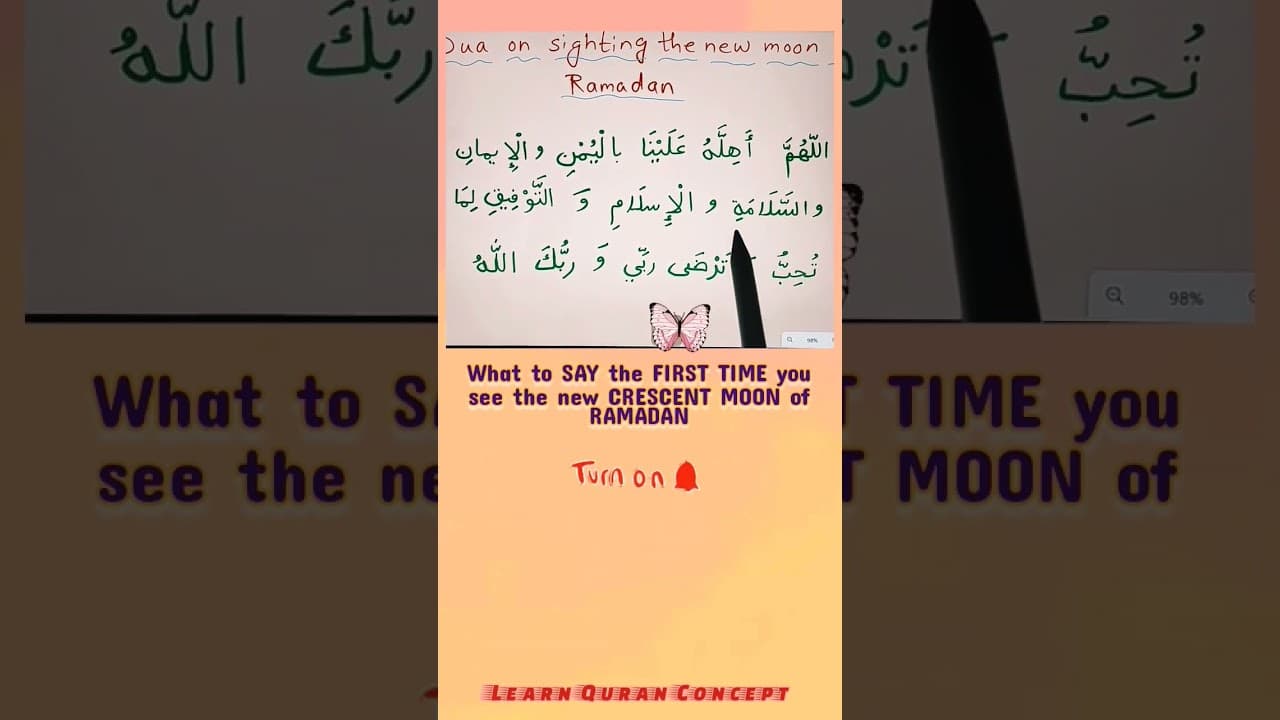 Dua on sighting the new moon
Ramadan
اللّٰهُمَّ أَهِلَّهُ عَلَيْنَا بالْيُمْنِ والْإِيمانِ
والسَّلَامَةِ و الْإِسلَامِ وَ التَّوْفِيقِ لِمَا
تُحِبُّ تَرْضَى ربِّي وَ ربُّكَ اللّٰهُ
98%
What to SAY the FIRST TIME you
see the new CRESCENT MOON of
RAMADAN
Turn on
LEARN QURAN CONCEPT